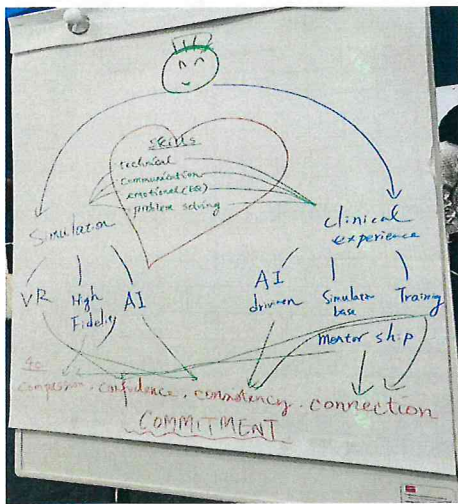 Skills
technical
communication
emotional (EQ)
problem solving
Simulation
clinical
experience
VR
High
Fidelity
AI
AI
driven
Simulation
base
Training
Mentor ship
compassion, confidence, consistency, connection
COMMITMENT